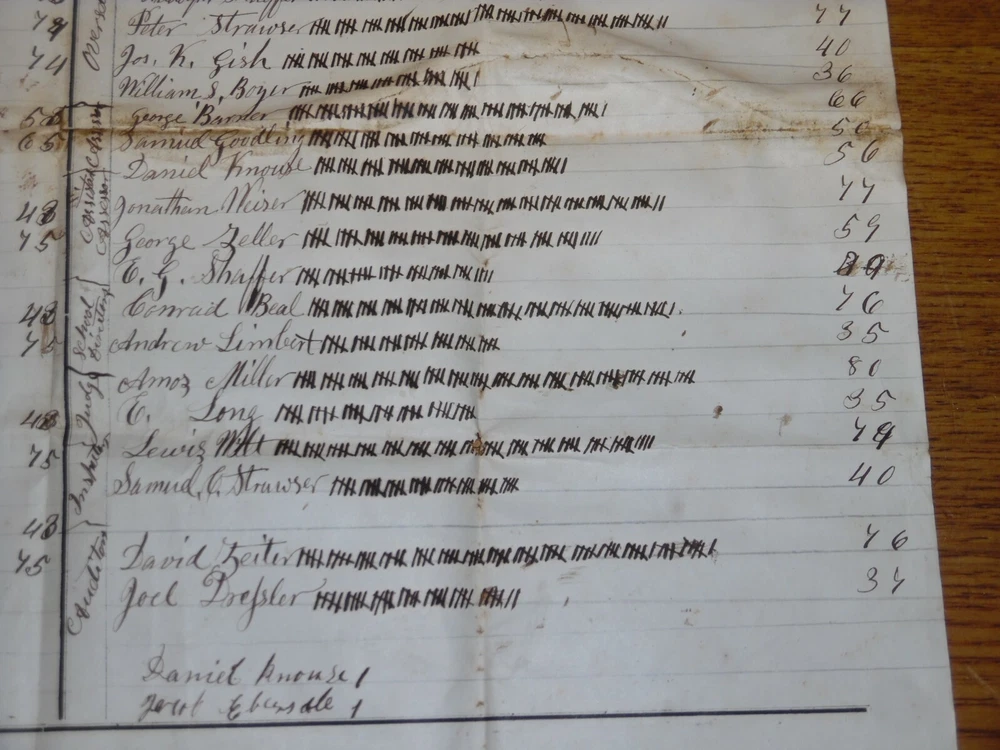 74 Peter Strawser 77
74 Jos. K. Gish 40
William S. Boyer 36
George Barner 66
65 Samuel Goodling 50
Daniel Knouse 56
48 Jonathan Weiser 77
75 George Zeller 59
E. G. Shaffer
48 Conrad Beal 76
75 Andrew Limbert 35
Amos Miller 80
48 E. Long 35
75 Lewis Witt 79
Samuel C. Strawser 40
48
75 David Zeiter 76
Joel Dressler 37
Daniel Knouse 1
Jacob Ebersole 1
Overse
Assessor
School Directors
Judge
Inspector
Auditors